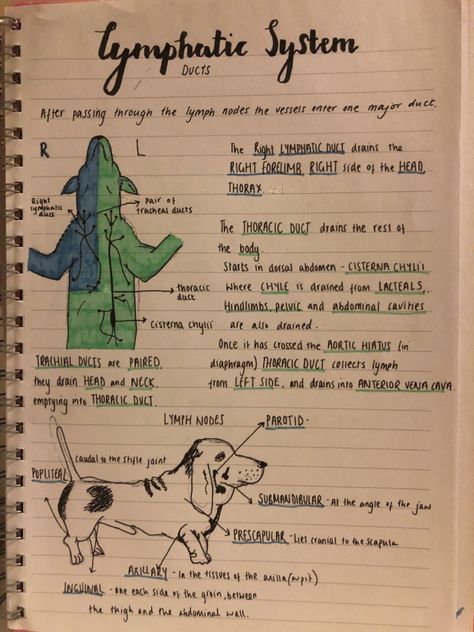 Lymphatic System
DUCTS
After passing through the lymph nodes the vessels enter one major duct.
R
L
Right lymphatic duct
pair of tracheal ducts
thoracic duct
cisterna chylii
The Right LYMPHATIC DUCT drains the
RIGHT FORELIMB, RIGHT side of the HEAD,
THORAX
The THORACIC DUCT drains the rest of
the body.
Starts in dorsal abdomen - CISTERNA CHYLII
Where CHYLE is drained from LACTEALS,
Hindlimbs, pelvic and abdominal cavities
are also drained.
Once it has crossed the AORTIC HIATUS (in
diaphragm) THORACIC DUCT collects lymph
from LEFT SIDE, and drains into ANTERIOR VENA CAVA.
TRACHIAL DUCTS are PAIRED.
they drain HEAD and NECK.
emptying into THORACIC DUCT.
LYMPH NODES
PAROTID -
caudal to the stifle joint
POPLITEAL
SUBMANDIBULAR - At the angle of the jaw
PRESCAPULAR - Lies cranial to the scapula
AXILLARY - in the tissues of the axilla
INGUINAL - one each side of the groin, between
the thigh and the abdominal wall.